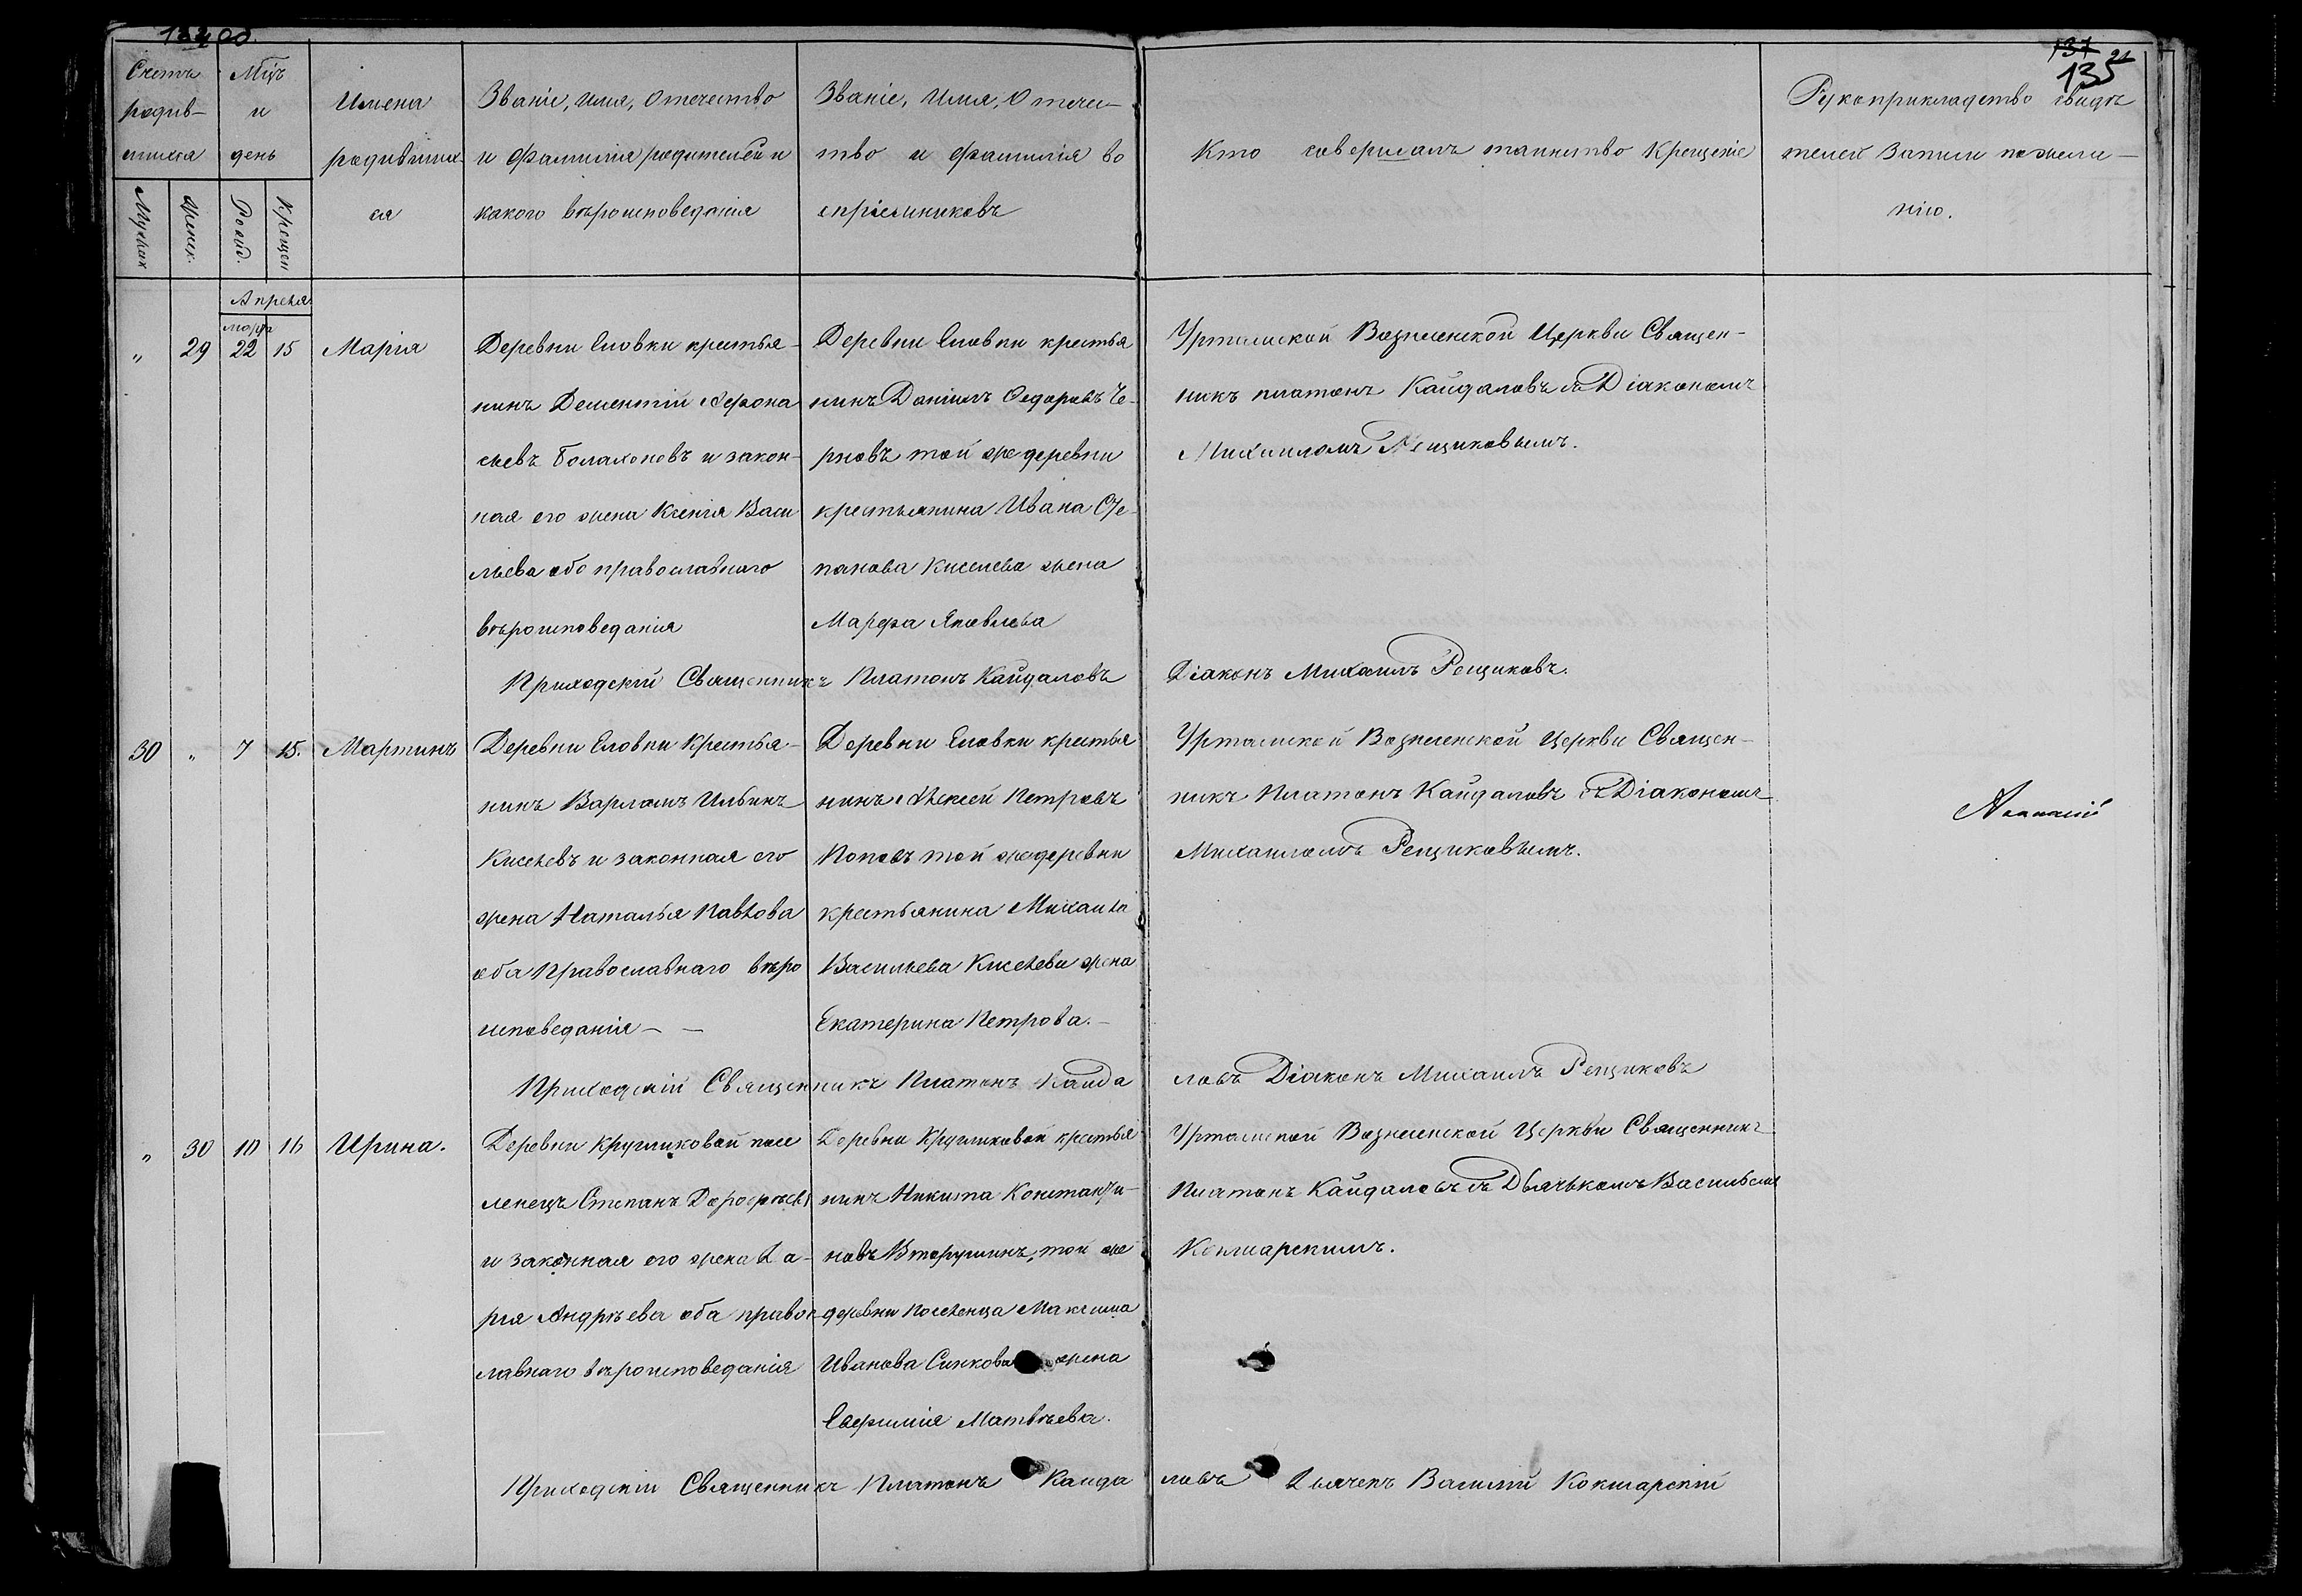 137
135
Счетъ родив-шихся
Мцъ и день
Имена родившихся
Званіе, имя, Отечество и фамилія родителей и какого вѣроисповеданія
Званіе, Имя, Отечество и фамилія воспріемниковъ
Кто совершалъ таинство Крещеніе
Рукоприкладство свидѣтелей Записи по желанію.
Мужск
Женск.
Рожд.
Крещен
Апреля
март
" 29 22 15 Марія
Деревни Еловки крестья-
нинъ Дементій Афона
сьевъ Болахоновъ и закон-
ная его жена Ксенія Васи
льева обо православнаго
вѣроисповеданія
Деревни Еловки крестья
нинъ Даніилъ Федоровъ Че-
рновъ той же деревни
крестьянина Ивана Сте-
панова Киселева жена
Марфа Яковлева
Уртамской Вознесенской Церкви Священ-
никъ платонъ Кайдаловъ съ Діакономъ
Михаиломъ Рещиковымъ.
Приходскій Священникъ Платонъ Кайдаловъ Діаконъ Михаилъ Рещиковъ.
30 " 7 15. Мартинъ
Деревни Еловки Крестья-
нинъ Варламъ Ильинъ
Киселевъ и законная его
жена Наталья Павлова
оба Православнаго вѣро
исповеданія - -
Деревни Еловки крестья
нинъ Алексей Петровъ
Поповъ той же деревни
крестьянина Михаила
Васильева Киселева жена
Екатерина Петрова.-
Уртамской Вознесенской Церкви Священ-
никъ Платонъ Кайдаловъ съ Діакономъ
Михаиломъ Рещиковымъ.
Приходскій Священникъ Платонъ Кайда ловъ Діаконъ Михаилъ Рещиковъ
" 30 10 16 Ирина.
Деревни Кругликовой посе
ленецъ Степанъ Дорофѣевъ
и законная его жена Да-
рья Андрѣева оба правос-
лавнаго вѣроисповеданія
Деревни Кругликовой крестья
нинъ Никита Константи-
новъ Вторушинъ, той же
деревни поселенца Максима
Иванова Синкова жена
Евфимія Матвѣева.
Уртамской Вознесенской Церкви Священникъ
Платонъ Кайдаловъ съ Дьячькомъ Васильемъ
Кокшарскимъ.
Приходскій Священникъ Платонъ Кайда ловъ Дьячекъ Василій Кокшарскій